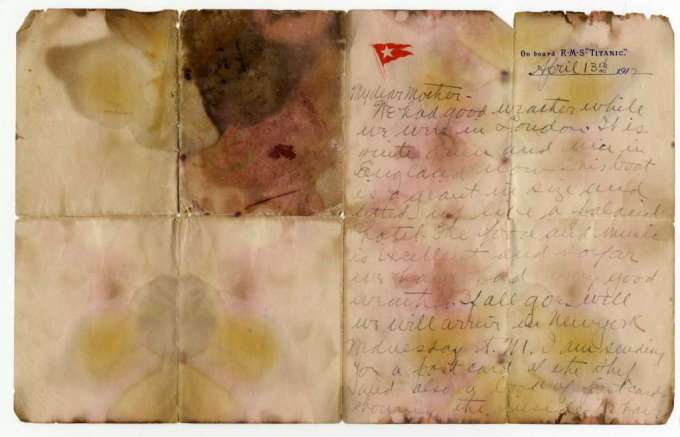 On board R·M·S "TITANIC."
April 13th 1912
My dear Mother -
We had good weather while
we were in London. It is
quite green and nice in
England now. This boat
is a giant in size and
fitted up like a palacial
hotel. The food and music
is excellent and so far
we have had very good
weather. If all goes well
we will arrive in New York
Wednesday A.M. I am sending
you a postcard of the ship
and also a book of postcards
showing the inside